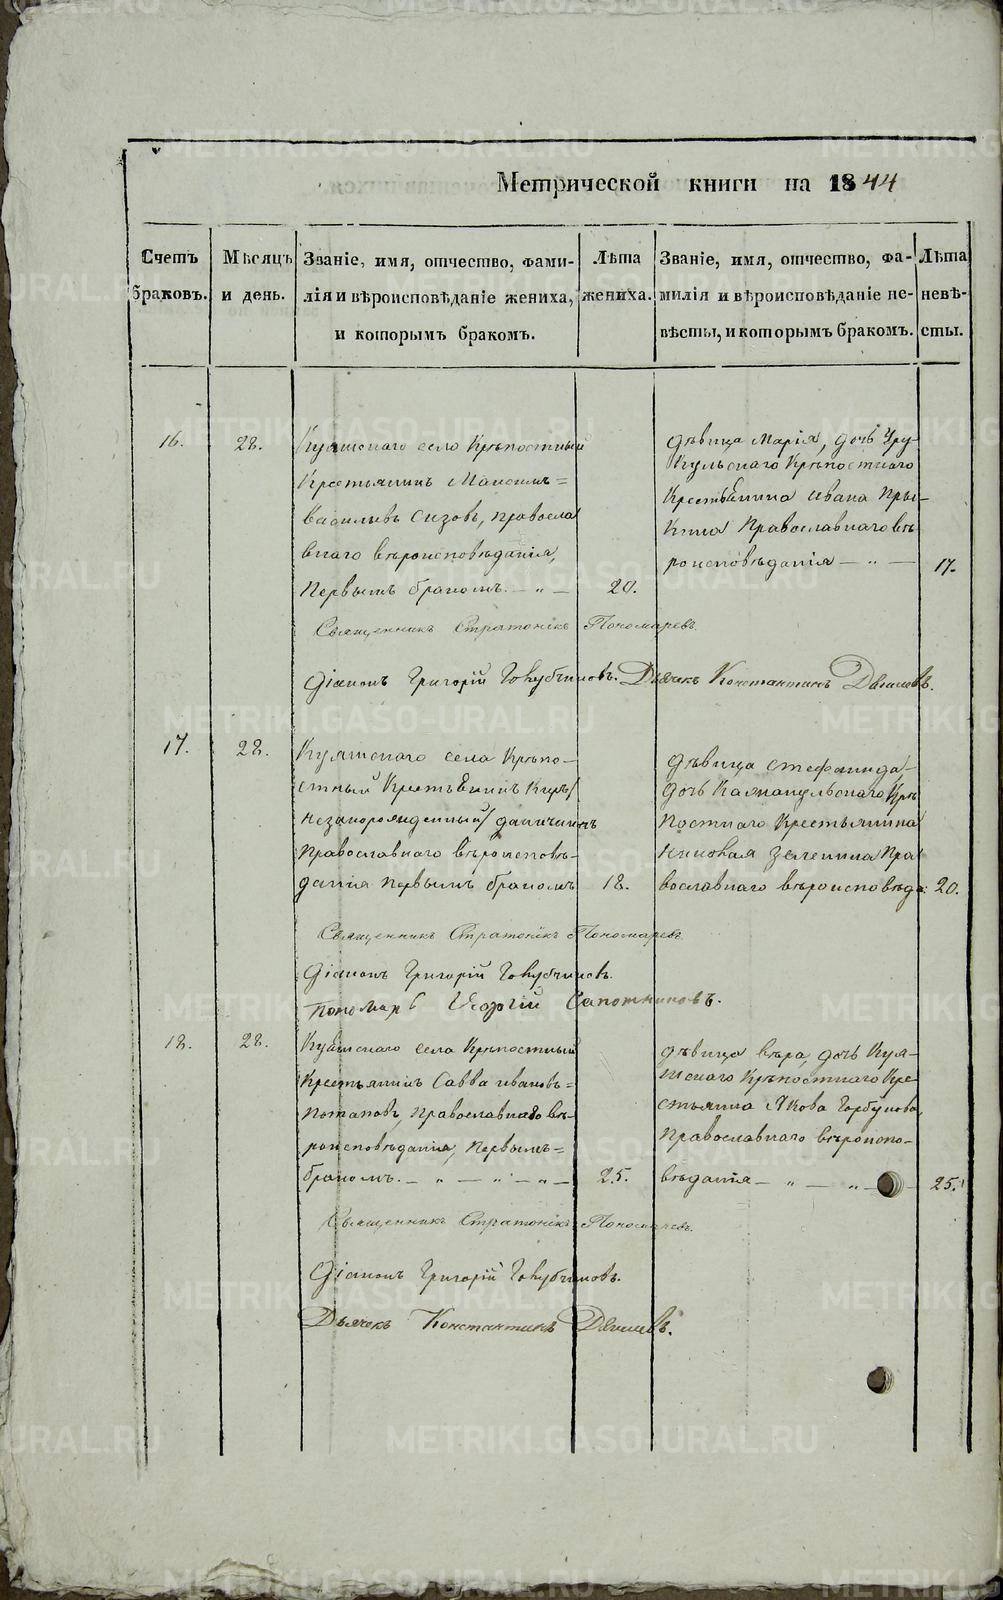 Метрической книги на 1844
Счетъ браковъ.
Мѣсяцъ и день.
Званіе, имя, отчество, фами-
лія и вѣроисповѣданіе жениха,
и которымъ бракомъ.
Лѣта жениха.
Званіе, имя, отчество, фа-
милія и вѣроисповѣданіе не-
вѣсты, и которымъ бракомъ.
Лѣта невѣ-
сты.
16.
28.
Куяшскаго село Крѣпостный
Крестьянинъ Максимъ=
Василивъ Сизовъ, православ
внаго вѣроисповѣданія,
Первымъ бракомъ. — „ —
20.
Дѣвица Марія, дочь Уру-
Кульскаго Крѣпостнаго
Крестьянина Ивана Пры-
Кина Православнаго вѣ
роисповѣданія — „ —
17.
Священникъ Стратоникъ Пономаревъ.
Діаконъ Григорій Голубчиковъ. Дьячекъ Константинъ
17.
28.
Куяшскаго села Крѣпо-
стный Крестьянинъ Киръ/
незаконорожденный/
Православнаго вѣроисповѣ-
данія первымъ бракомъ
18.
Дѣвица Стефанида/
дочь Крѣ
Постнаго Крестьянина
Зеленина Пра
вославнаго вѣроисповѣда:
20.
Священникъ Стратоникъ Пономаревъ
Діаконъ Григорій Голубчиковъ.
Пономарь Георгій Сапожниковъ.
18.
28.
Куяшскаго села Крѣпостный
Крестьянинъ Савва Ивановъ=
Потаповъ, Православнаго вѣ-
роисповѣданія, Первымъ=
бракомъ. — „ — „ — „ —
25.
Дѣвица Вѣра, дочь Куя-
шскаго Крѣпостнаго Кре-
стьянина Якова Горбунова,
Православнаго вѣроиспо-
вѣданія — „ — „ —
25.
Священникъ Стратоникъ Пономаревъ.
Діаконъ Григорій Голубчиковъ.
Дьячекъ Константинъ
METRIKI.GASO-URAL.RU